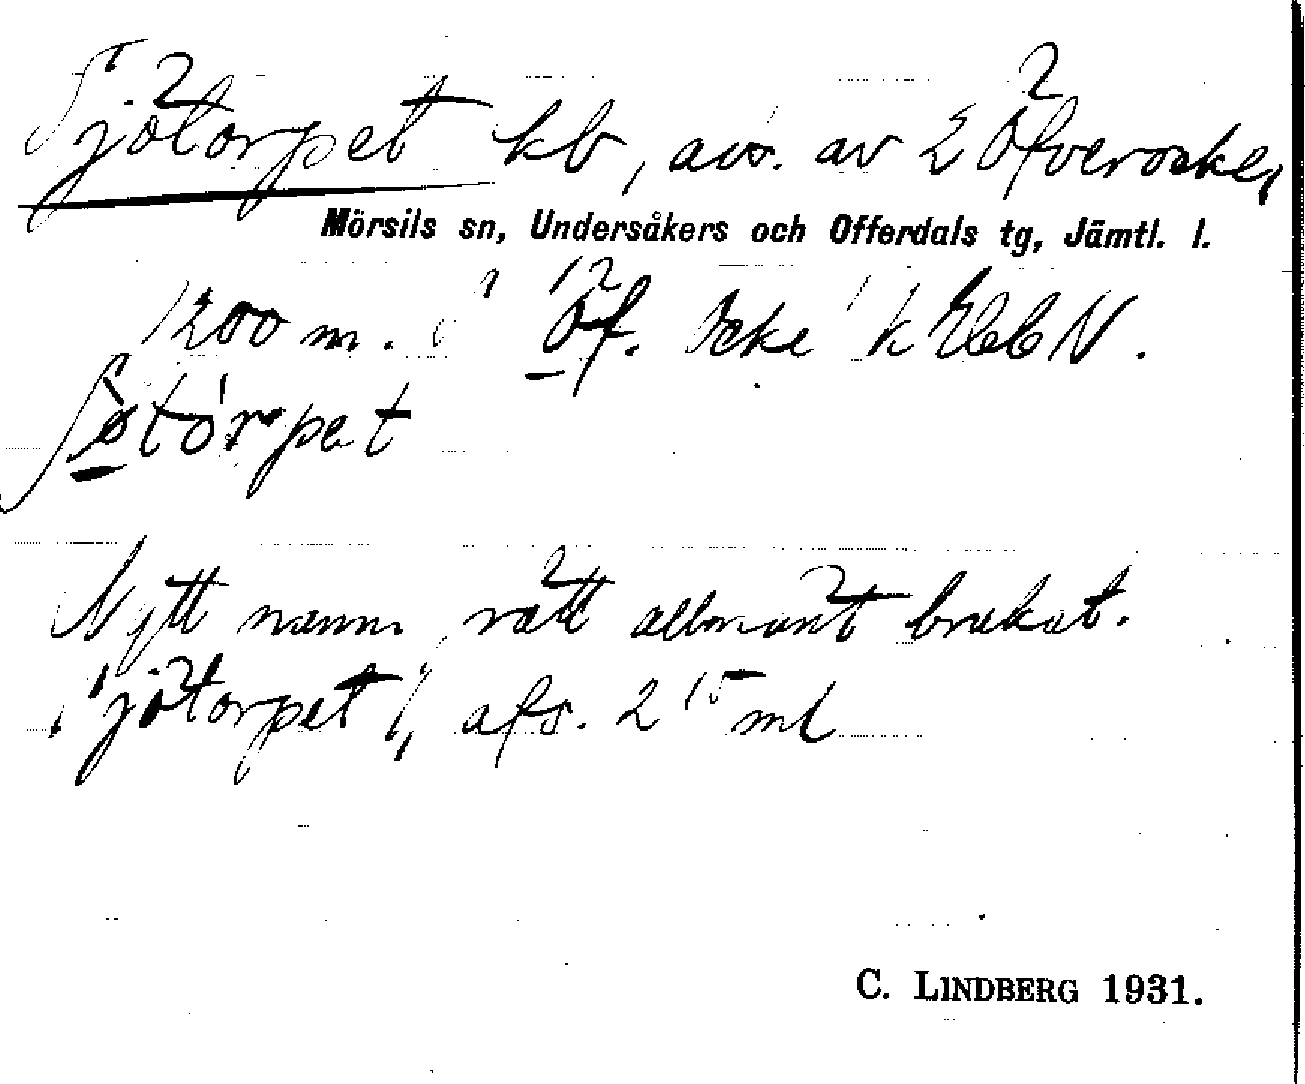 Sjötorpet kb, avs. av 2 Öfverocke,
Mörsils sn, Undersåkers och Offerdals tg, Jämtl. l.
1200 m. Öf. Ocke k N.
Nytt namn, rätt allmänt brukat.
Sjötorpet, afs. 2 15 ml
C. LINDBERG 1931.